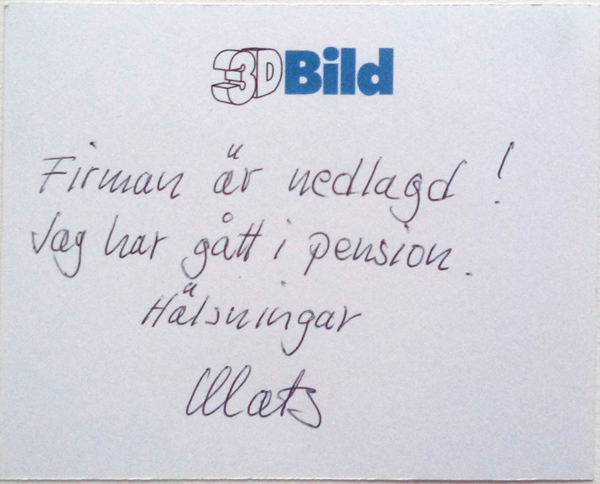 3D Bild
Firman är nedlagd!
Jag har gått i pension.
Hälsningar
Mats